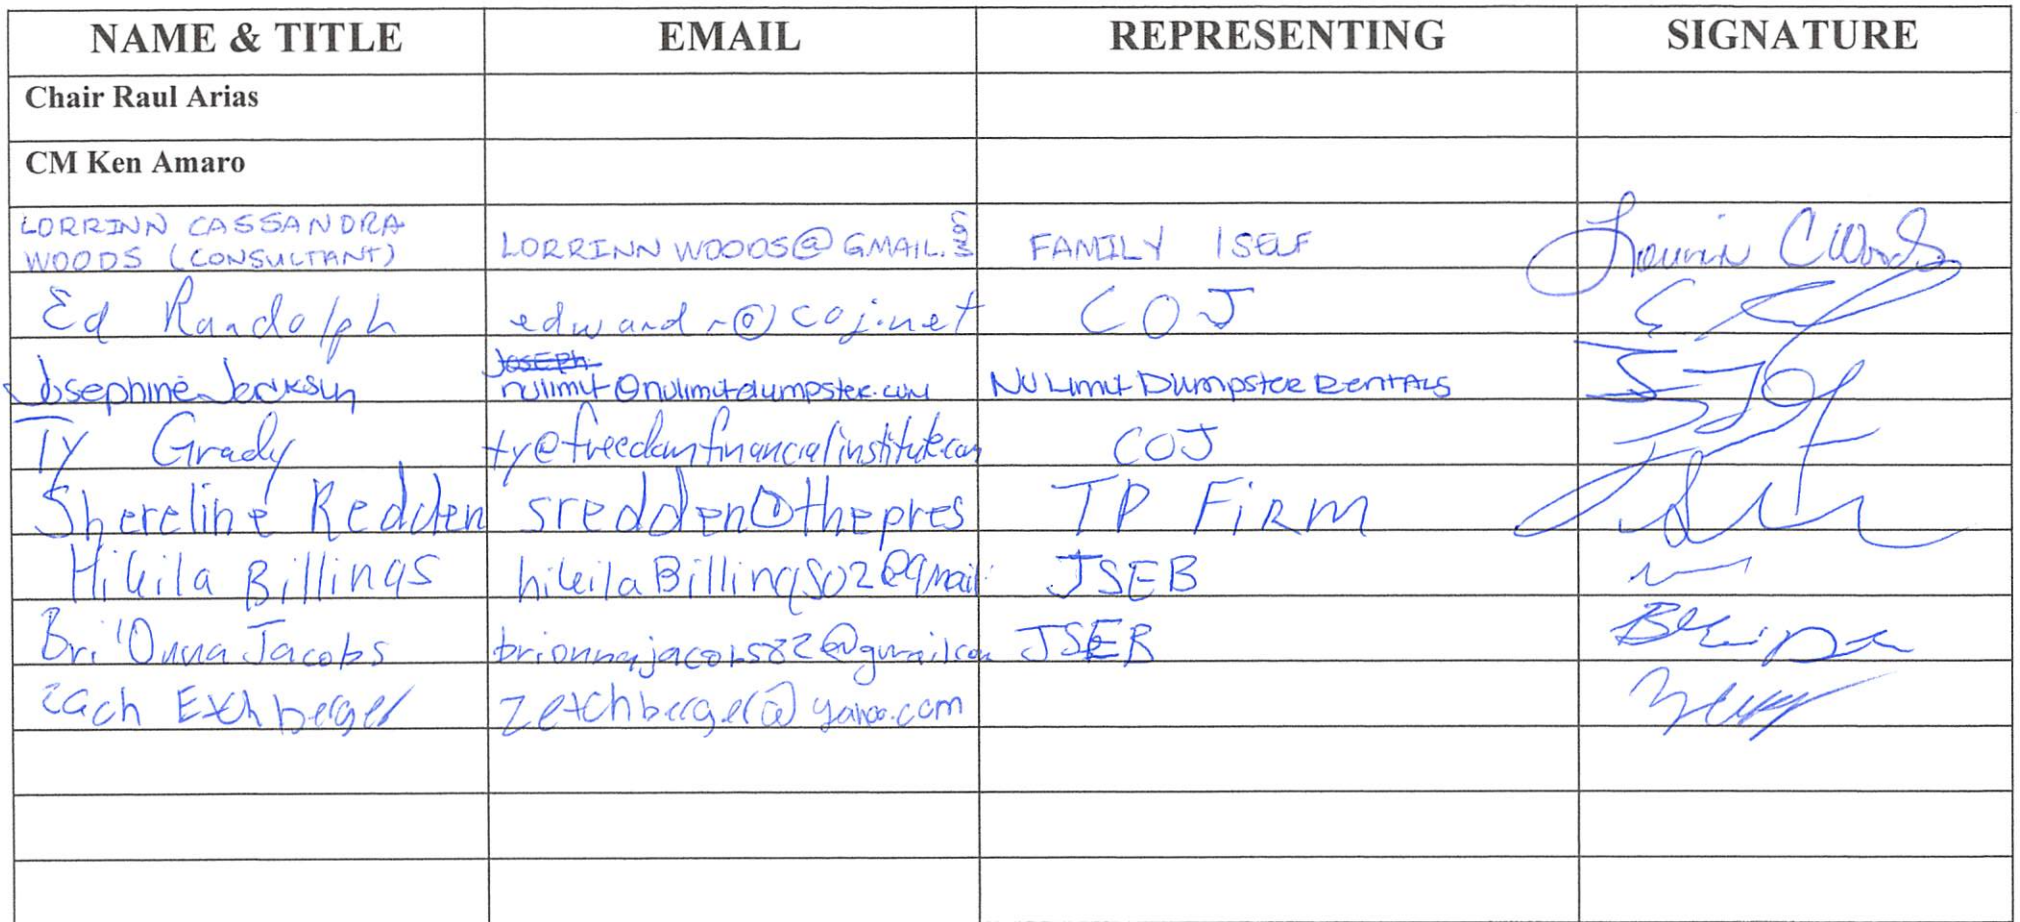 NAME & TITLE EMAIL REPRESENTING SIGNATURE
Chair Raul Arias
CM Ken Amaro
LORRINN CASSANDRA
WOODS (CONSULTANT) LORRINNWOODS@GMAIL.COM FAMILY / SELF Lorrinn C Woods
Ed Randolph edwardr@coj.net COJ
Joseph
Josephine Jackson nulimit@nulimitdumpster.com NU Limit Dumpster Rentals
Ty Grady ty@freedomfinancialinstitute.com COJ
Shereline Redden sredden@thepres TP FiRM
Hikila Billings hikilaBillings02@gmail JSEB
Bri'Onna Jacobs brionnajacobs82@gmail.com JSEB
Zach Etchberger zetchberger@yahoo.com